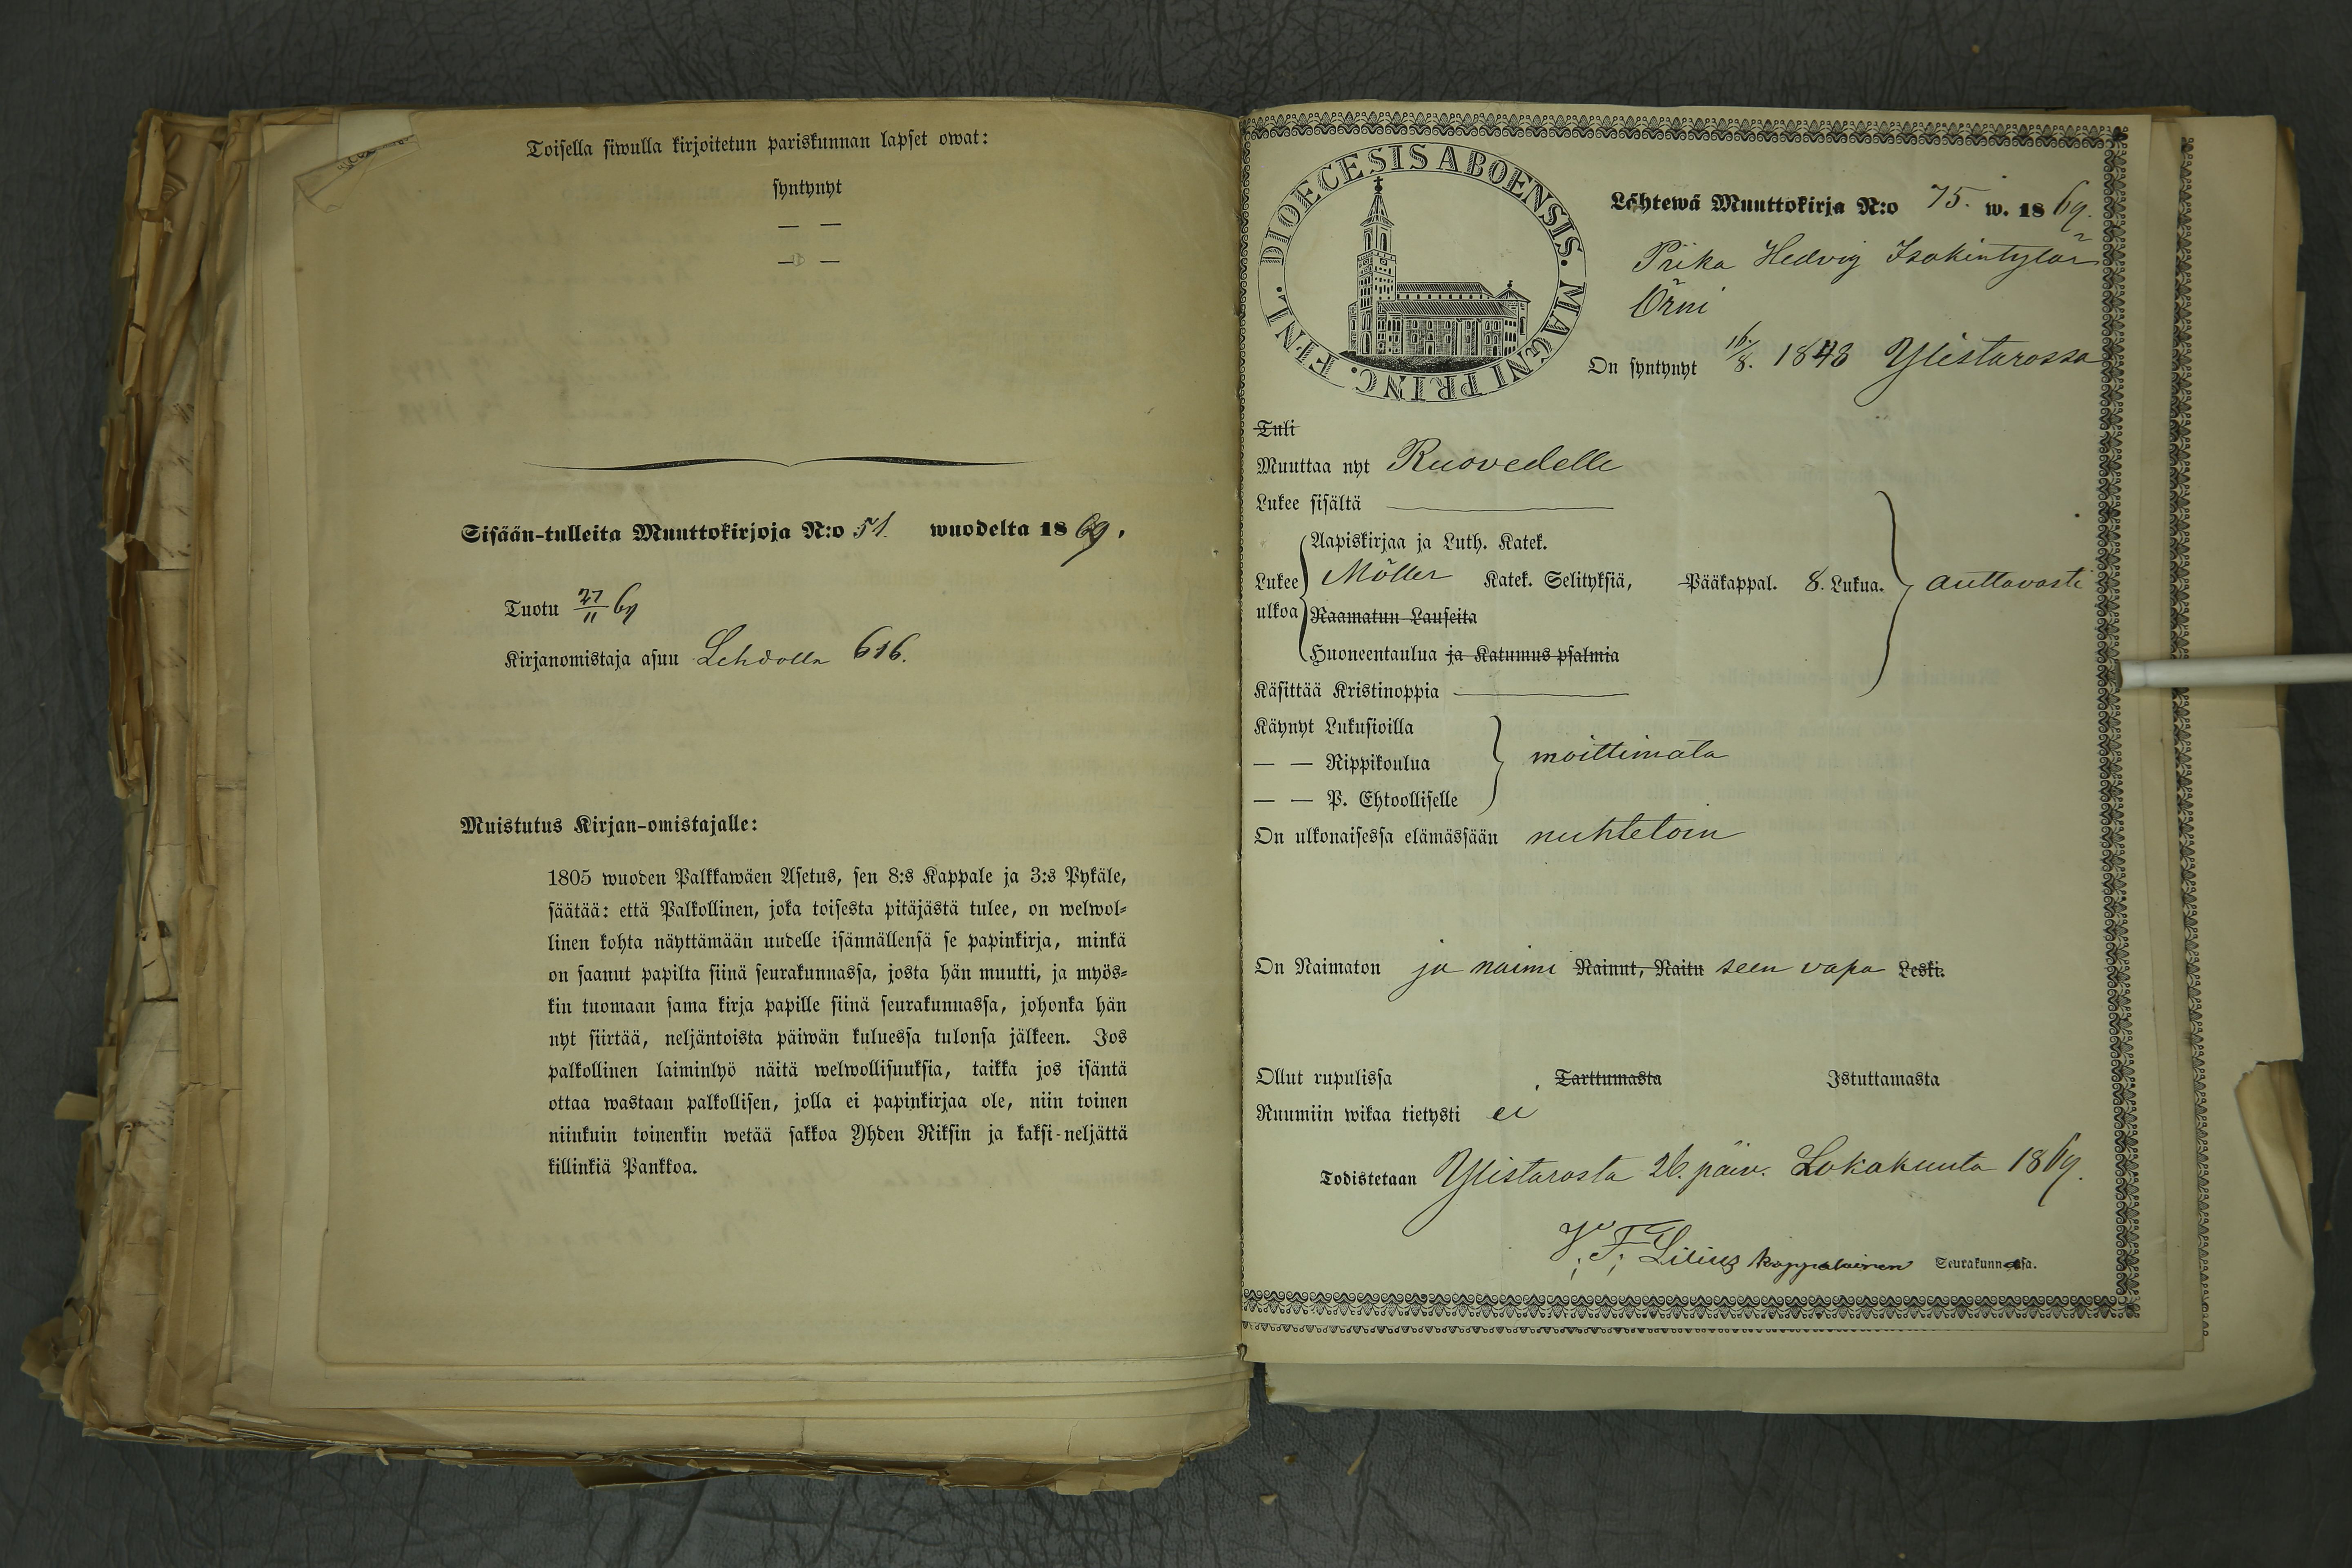 Toisella siwulla kirjoitetun pariskunnan lapset owat:
syntynyt
— —
— —
Sisään-tulleita Muuttokirjoja N:o 51. wuodelta 1869.
Tuotu 27/11 69
Kirjanomistaja asuu Lehdolla 616.
Muistutus Kirjan-omistajalle:
1805 wuoden Palkkawäen Asetus, sen 8:s Kappale ja 3:s Pykäle,
säätää: että Palkollinen, joka toisesta pitäjästä tulee, on welwol-
linen kohta näyttämään uudelle isännällensä se papinkirja, minkä
on saanut papilta siinä seurakunnassa, josta hän muutti, ja myös-
kin tuomaan sama kirja papille siinä seurakunnassa, johonka hän
nyt siirtää, neljäntoista päiwän kuluessa tulonsa jälkeen. Jos
palkollinen laiminlyö näitä welwollisuuksia, taikka jos isäntä
ottaa wastaan palkollisen, jolla ei papinkirjaa ole, niin toinen
niinkuin toinenkin wetää sakkoa Yhden Riksin ja kaksi-neljättä
killinkiä Pankkoa.
DIOECESIS ABOENSIS. MAGNI PRINC. FINL.
Lähtewä Muuttokirja N:o 75. w. 1869.
Piika Hedvig Isakintytär
Örni
On syntynyt 16/8. 1843 Ylistarossa
Tuli
Muuttaa nyt Ruovedelle
Lukee sisältä
Aapiskirjaa ja Luth. Katek.
Lukee ulkoa Möller Katek. Selityksiä, Pääkappal. 8. Lukua. auttavasti
Raamatun Lauseita
Huoneentaulua ja Katumus psalmia
Käsittää Kristinoppia
Käynyt Lukusioilla
— — Rippikoulua moittimata
— — P. Ehtoolliselle
On ulkonaisessa elämässään nuhtetoin
On Naimaton ja naimi Nainut, Naitu seen vapa Leski.
Ollut rupulissa Tarttumasta Istuttamasta
Ruumiin wikaa tietysti ei
Todistetaan Ylistarosta 26. päiv. Lokakuuta 1869.
V. F. Lilius kappalainen Seurakunnassa.